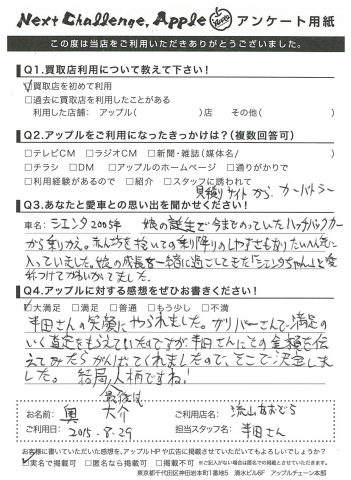 Next Challenge, Apple アンケート用紙
この度は当店をご利用いただきありがとうございました。
Q1.買取店利用について教えて下さい!
☑買取を初めて利用
□過去に買取を利用したことがある
利用した店舗: アップル( )店 その他( )
Q2.アップルをご利用になったきっかけは?(複数回答可)
□テレビCM □ラジオCM □新聞・雑誌(媒体名/ )
□チラシ □DM □アップルのホームページ □通りがかりで
□利用経験があるので □紹介 □スタッフに誘われて
見積りサイトから. カートラー
Q3.あなたと愛車との思い出をお聞かせください!
車名: シエンタ2005年 娘の誕生で今までのっていたハッチバックカー
から乗りかえ。赤ん坊を抱いての乗り降りのしやすさもありたいへん気に
入っていました。娘の成長を一緒に過ごしてきた「シエンタちゃん」と愛
称つけてかわいがってました。
Q4.アップルに対する感想をぜひお書きください!
☑大満足 □満足 □普通 □もう少し □不満
半田さんの笑顔にやられました。ガリバーさんで満足の
いく査定をもらえていたのですが半田さんにその金額を伝
えてみたらがんばってくれましたので、そこで決定しまし
た。 結局 最後は人柄ですね!
お名前: 奥 大介
ご利用店名: 流山おおたか
ご利用日: 2015.8.29
担当スタッフ名: 半田さん
お客様に書いていただいた感想を、アップルHPや広告に掲載させていただいてもよろしいでしょうか?
☑実名で掲載可 □匿名なら掲載可 □掲載不可 ※ご記入がない場合は匿名での掲載とさせていただきます。
東京都千代田区神田岩本町1番地5 清水ビル6F アップルチェーン本部